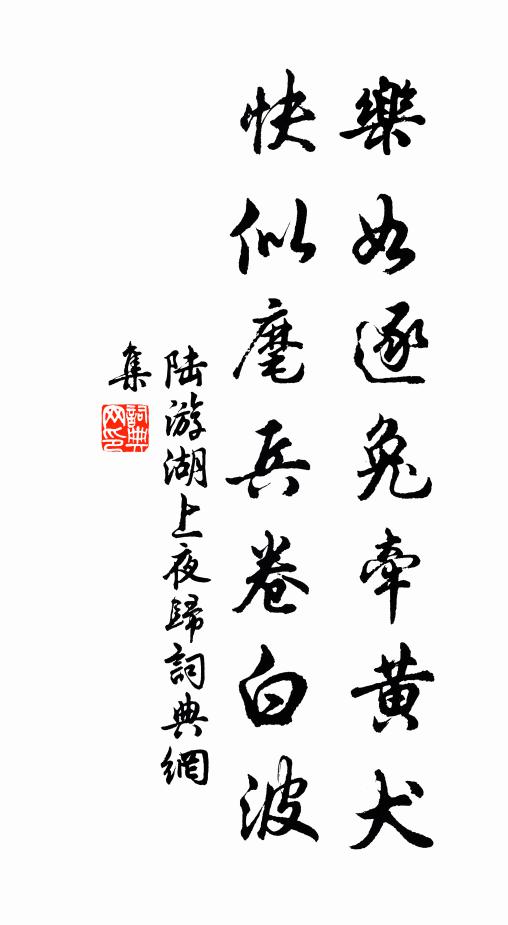 樂如逐兔牽黃犬
快似麾兵卷白波
陸游湖上夜歸詞典網
集
詞典網印